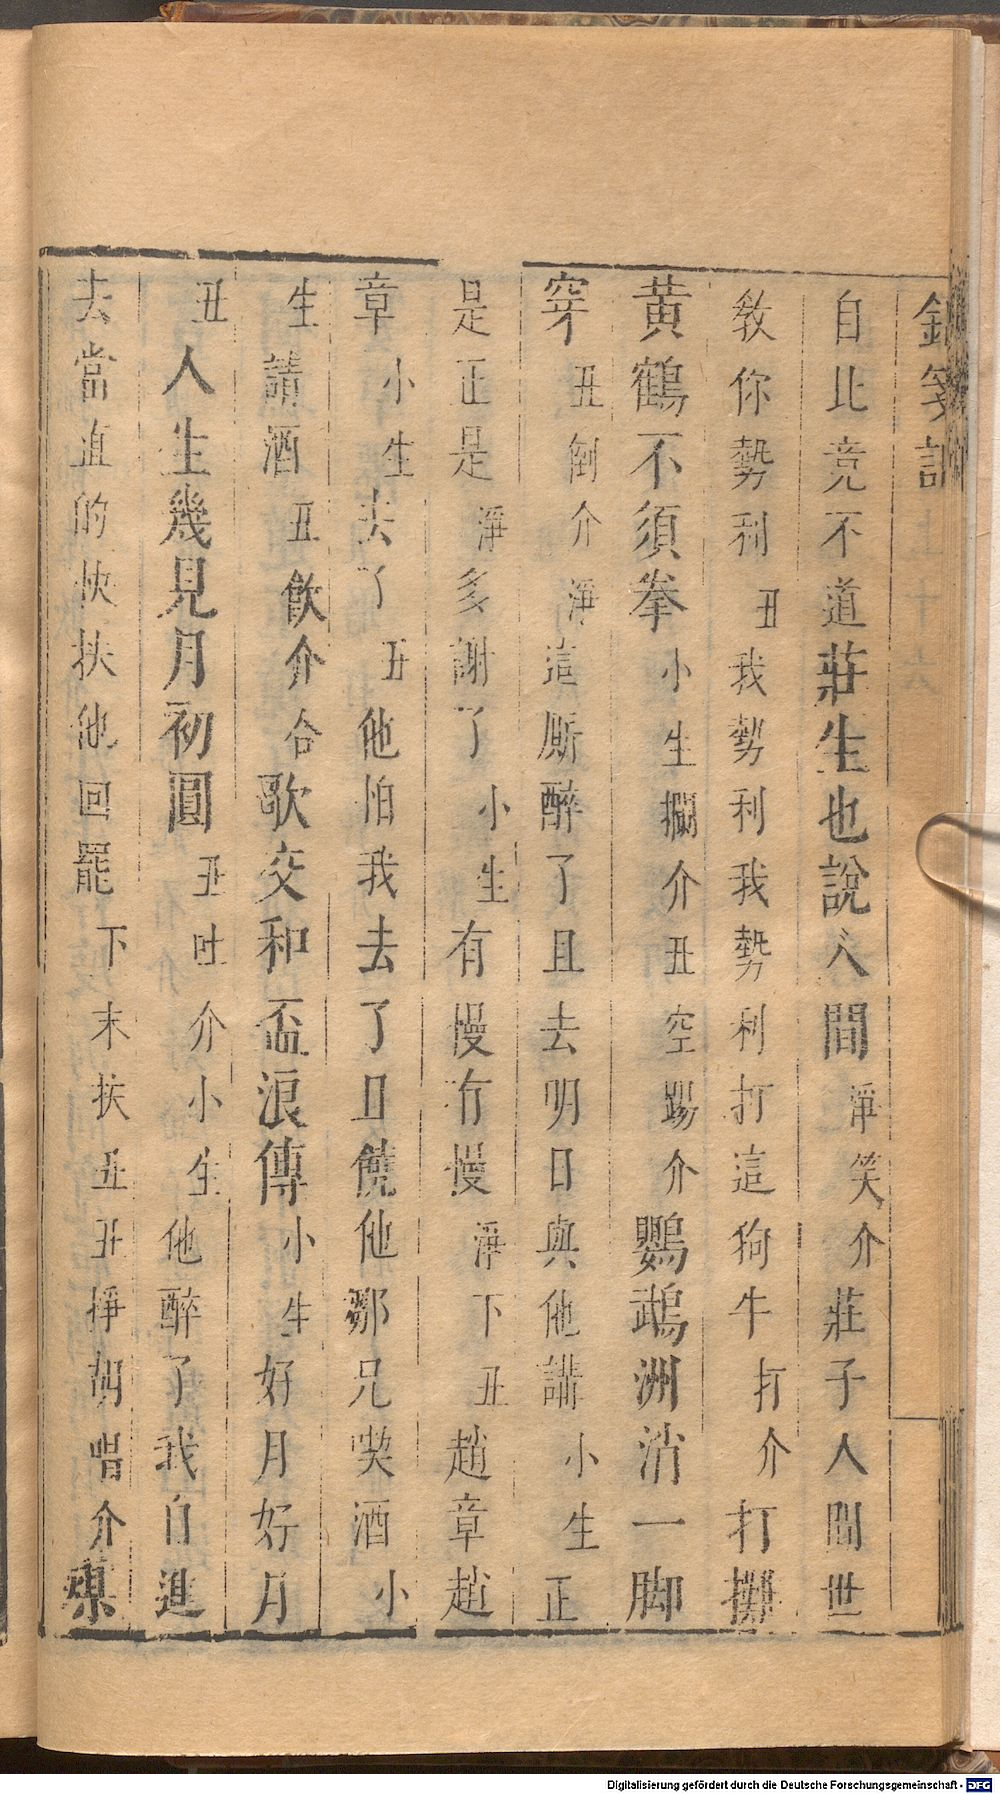 自比竞不道莊生也說人間淨笑介莊子人間世
教你勢利丑我勢利我勢利打這狗牛打介打攤
黃鶴不須拳小生攔介丑空踢介鸚鵡洲消一脚
穿丑倒介淨這厮醉了且去明日與他講小生正
是正是淨多謝了小生有慢有慢淨下丑趙章趙
章小生去了丑他怕我去了且饒他鄒兄喫酒小
生請酒丑飲介合歌交和盃浪傳小生好月好月
丑人生幾見月初圓丑吐介小生他醉了我自進
去當直的快扶他回罷下末扶丑丑掙胡唱介
Digitalisierung gefördert durch die Deutsche Forschungsgemeinschaft - DFG